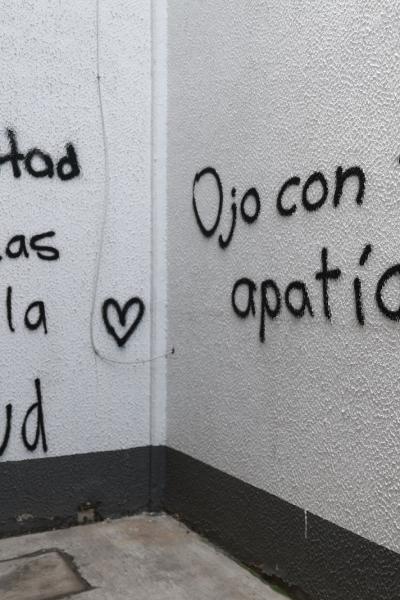 tad
as
la
ud
Ojo con
apatía